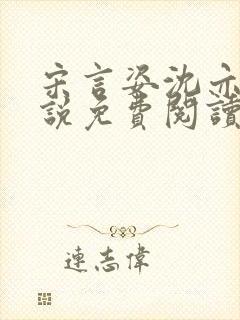 宋言姿沈亦
說免費閱讀
連志偉